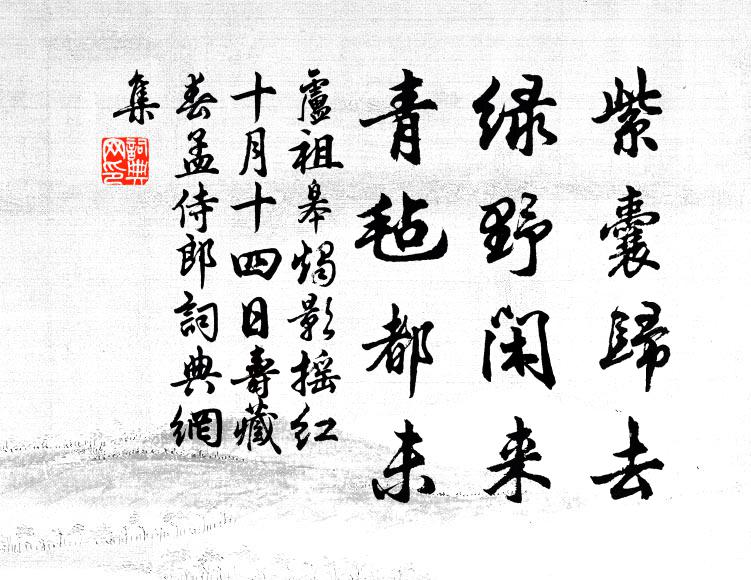 紫囊歸去
緑野閑来
青毡都未
盧祖皋燭影摇红
十月十四日壽藏
春孟侍郎詞典網
集
詞典
网印